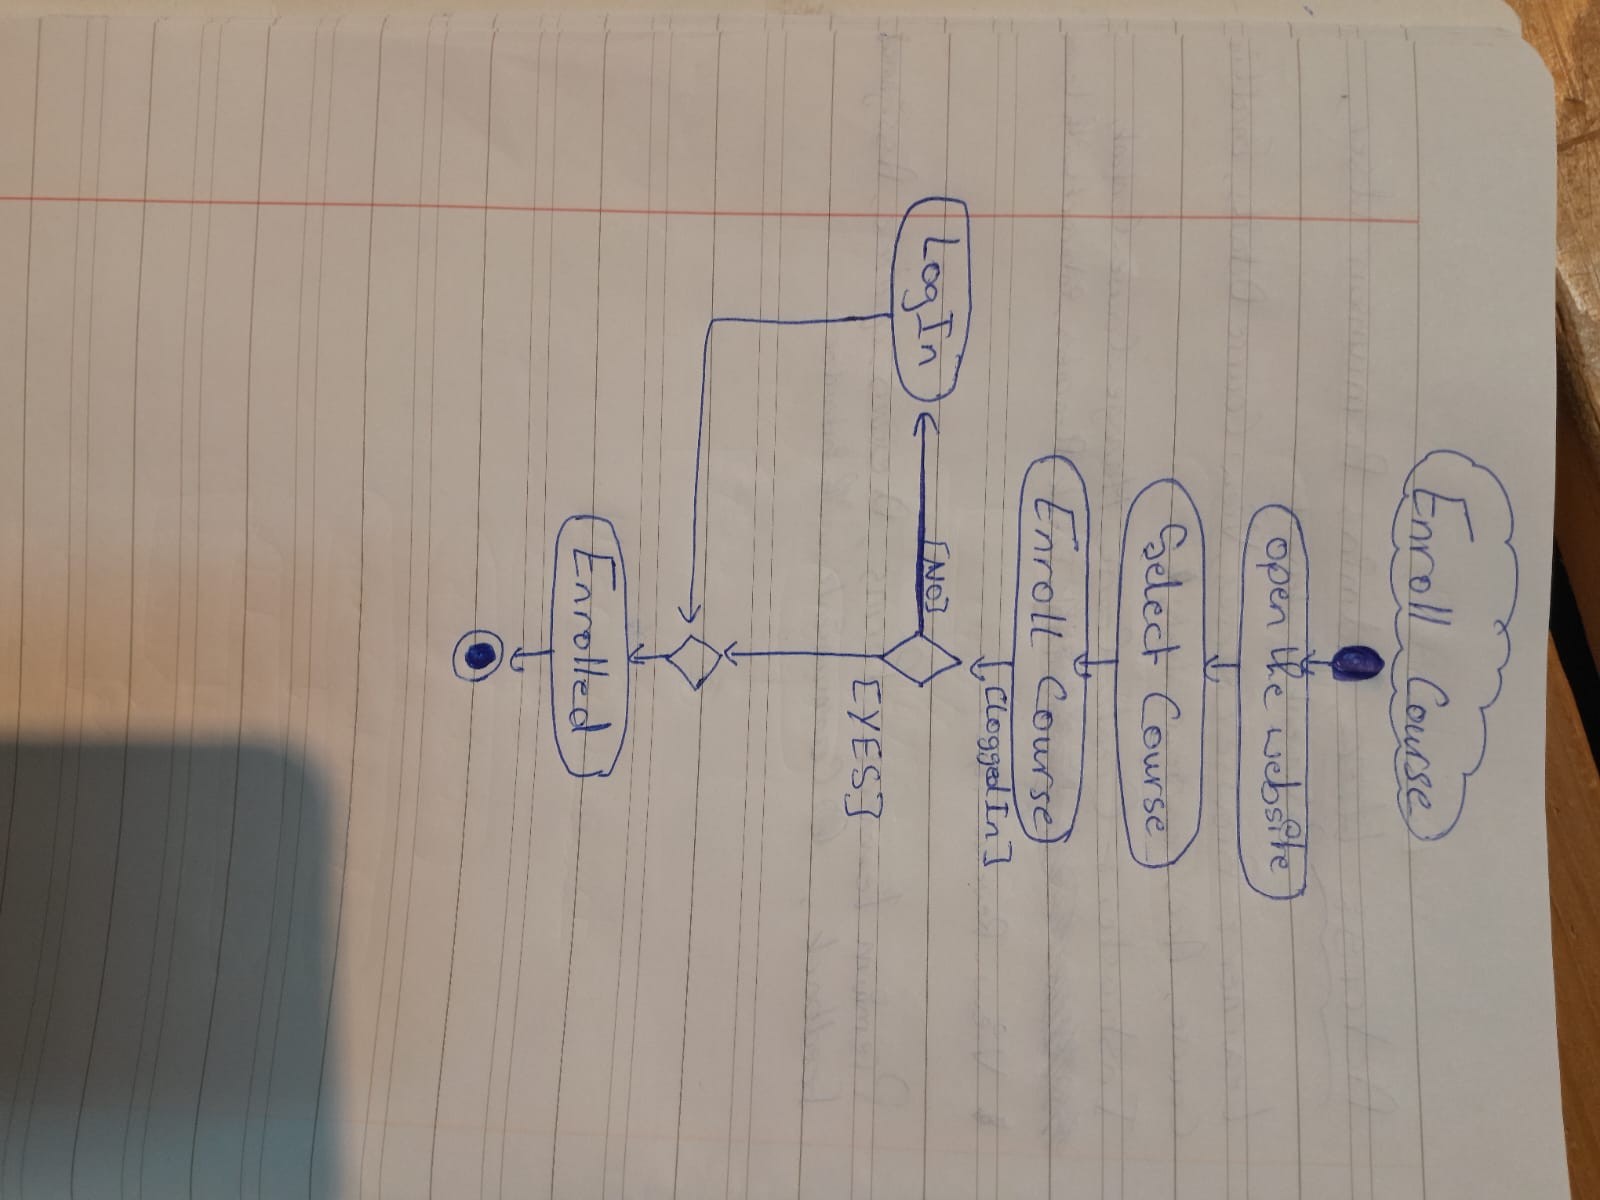 Enroll Course
open the website
Select Course
Enroll Course
[loggedIn]
LogIn
[NO]
[YES]
Enrolled